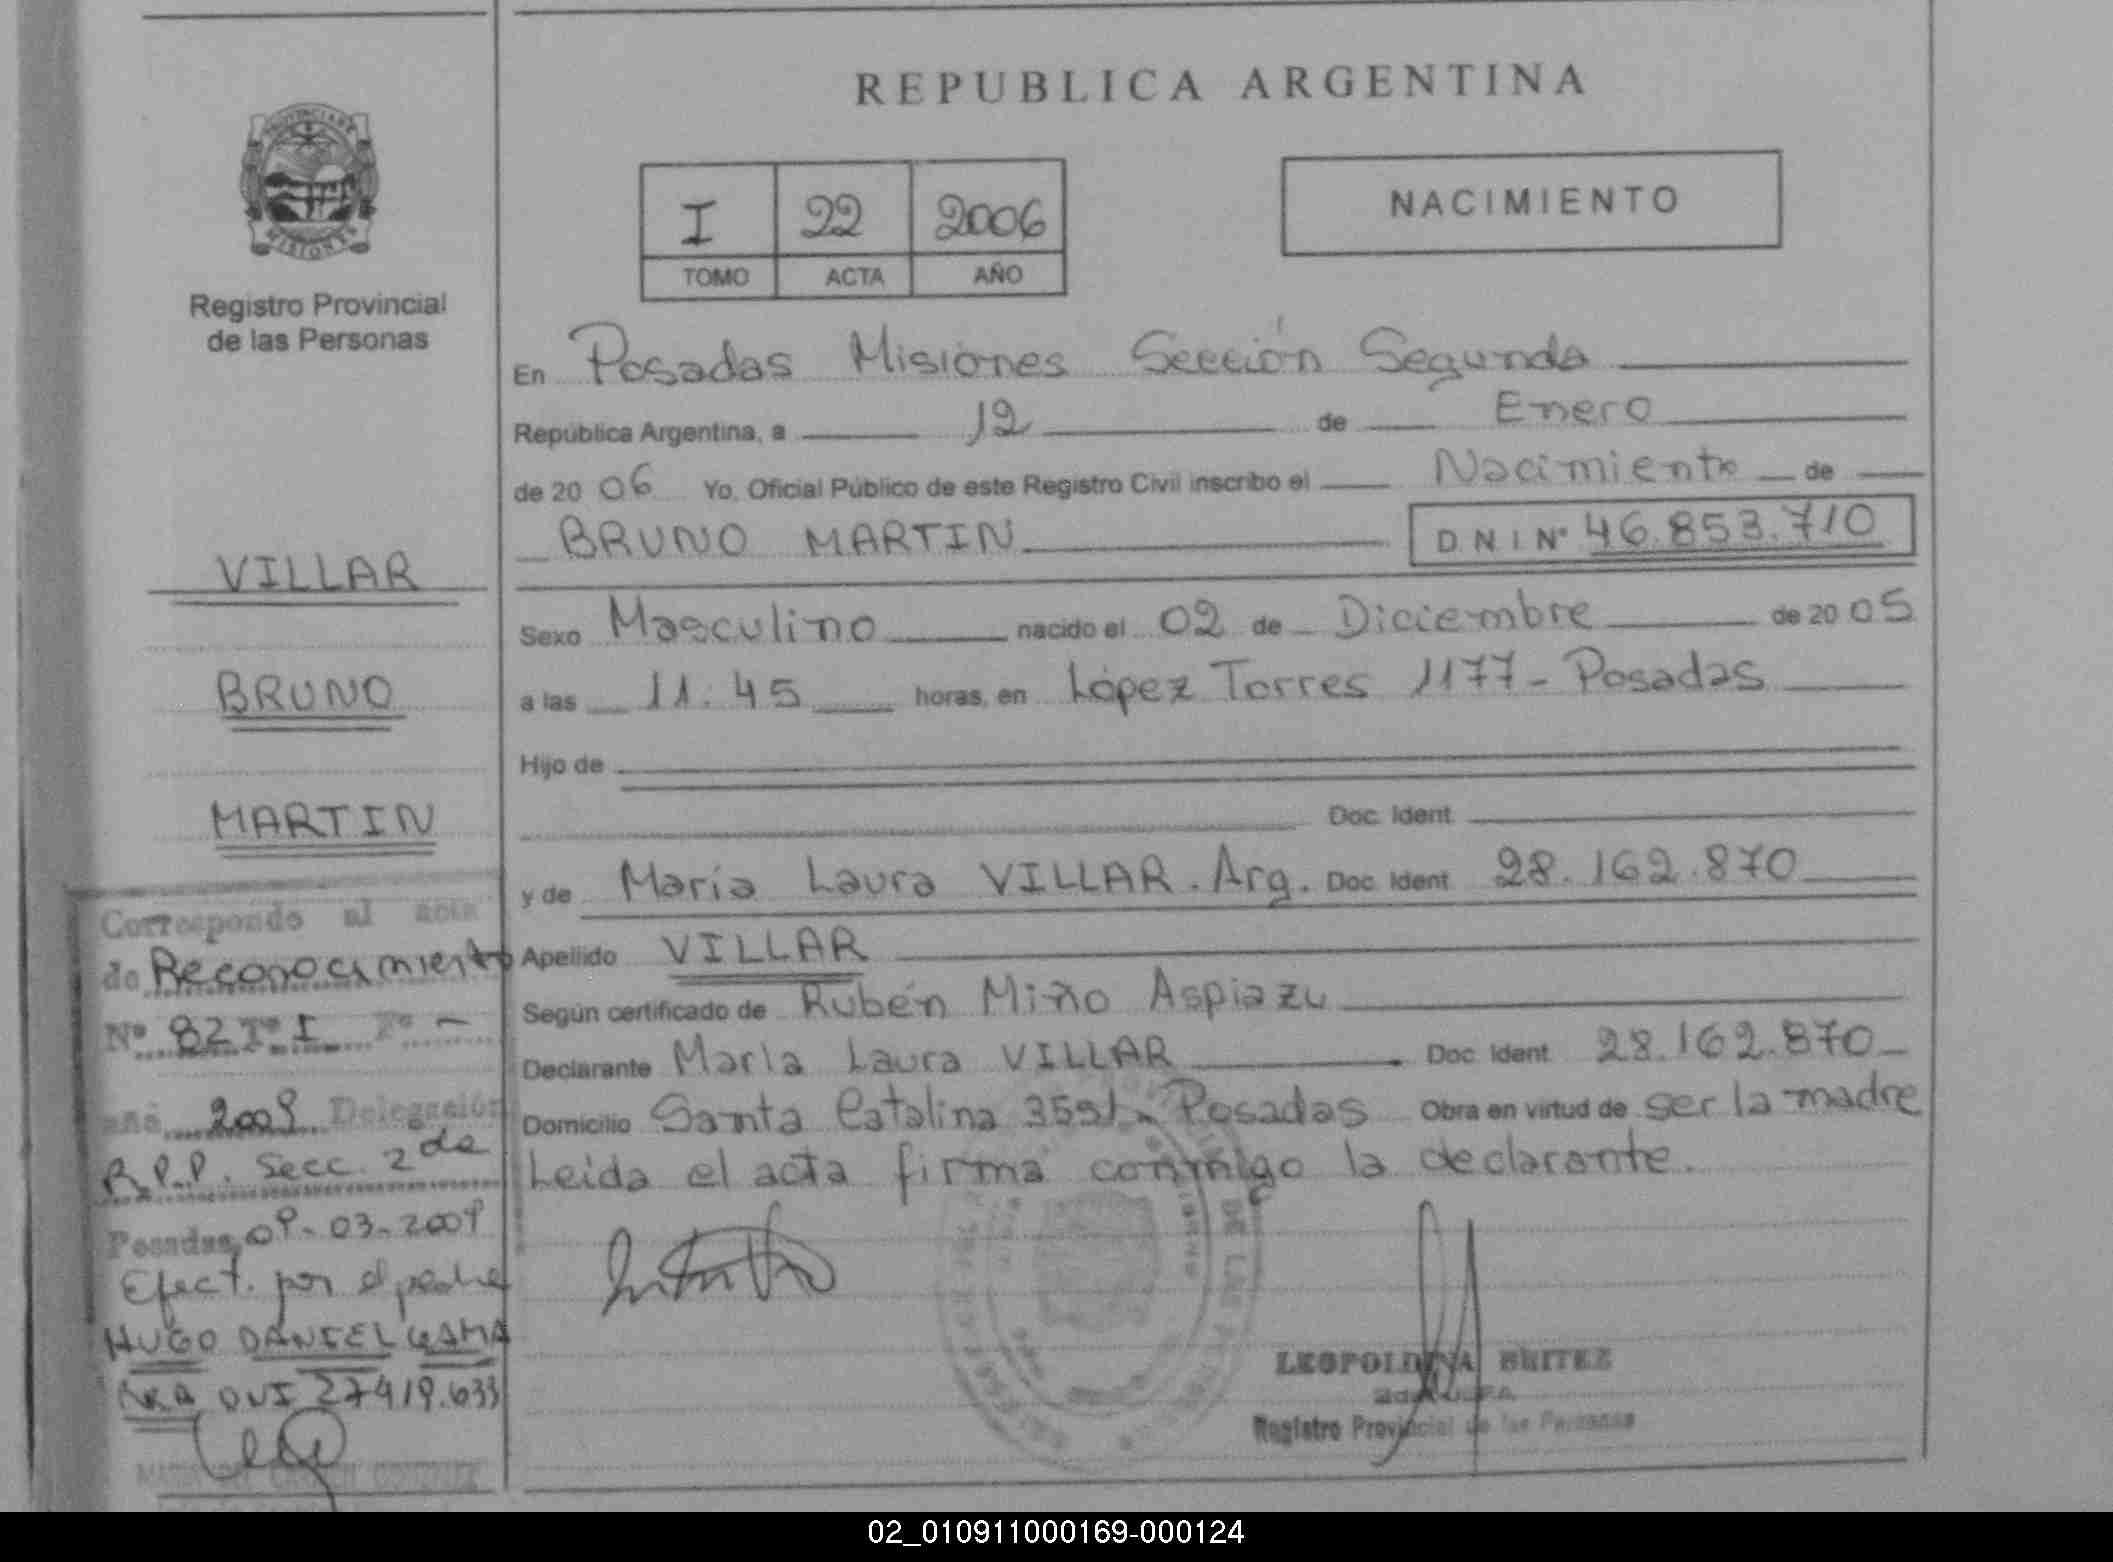 REPUBLICA ARGENTINA
PROVINCIA DE
MISIONES
Registro Provincial
de las Personas
I 22 2006
TOMO ACTA AÑO
NACIMIENTO
En Posadas Misiones Sección Segunda
República Argentina, a 12 de Enero
de 20 06 Yo, Oficial Público de este Registro Civil inscribo el Nacimiento de
BRUNO MARTIN D N I Nº 46.853.710
Sexo Masculino nacido el 02 de Diciembre de 20 05
a las 11.45 horas, en López Torres 1177 - Posadas
Hijo de
Doc. Ident.
y de María Laura VILLAR. Arg. Doc. Ident. 28.162.870
Apellido VILLAR
Según certificado de Rubén Miño Aspiazu
Declarante María Laura VILLAR Doc. Ident. 28.162.870
Domicilio Santa Catalina Posadas Obra en virtud de ser la madre
Leída el acta firma conmigo la declarante.
LEOPOLDINA BRITEZ
Registro Provincial de las Personas
VILLAR
BRUNO
MARTIN
Corresponde al acta
de Reconocimiento
Nº 82 Tº I Fº -
año 2009 Delegación
R.P.P. Secc. 2da
Posadas, 09-03-2009
Efect. por el padre
HUGO DANIEL GAMA
DNI 27419.633
02_010911000169-000124